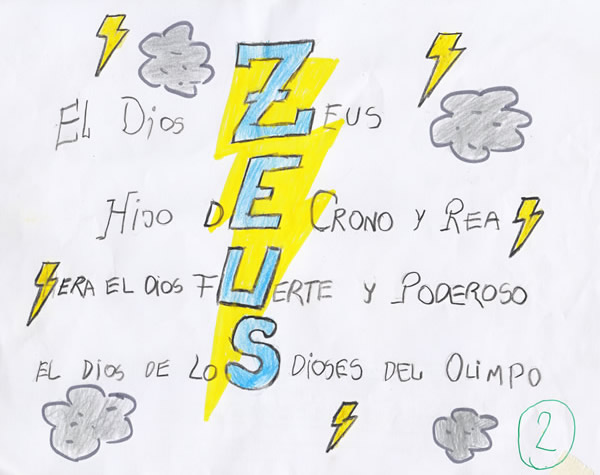 EL Dios ZEUS
Hijo DE CRONO y REA
ERA EL DiOS FUERTE Y PODEROSO
EL DiOS DE LOS DIOSES DEL OLIMPO
2